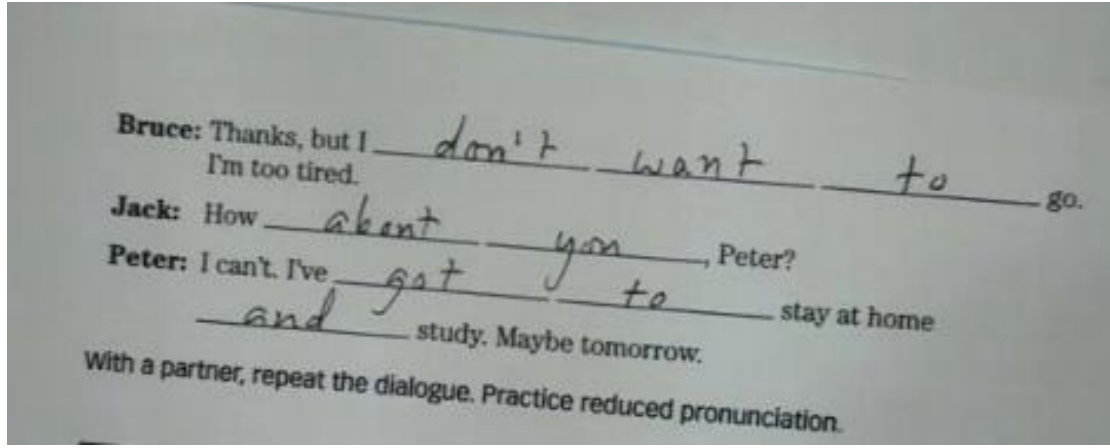 Bruce: Thanks, but I don't want to go.
I'm too tired.
Jack: How about you, Peter?
Peter: I can't. I've got to stay at home
and study. Maybe tomorrow.
With a partner, repeat the dialogue. Practice reduced pronunciation.